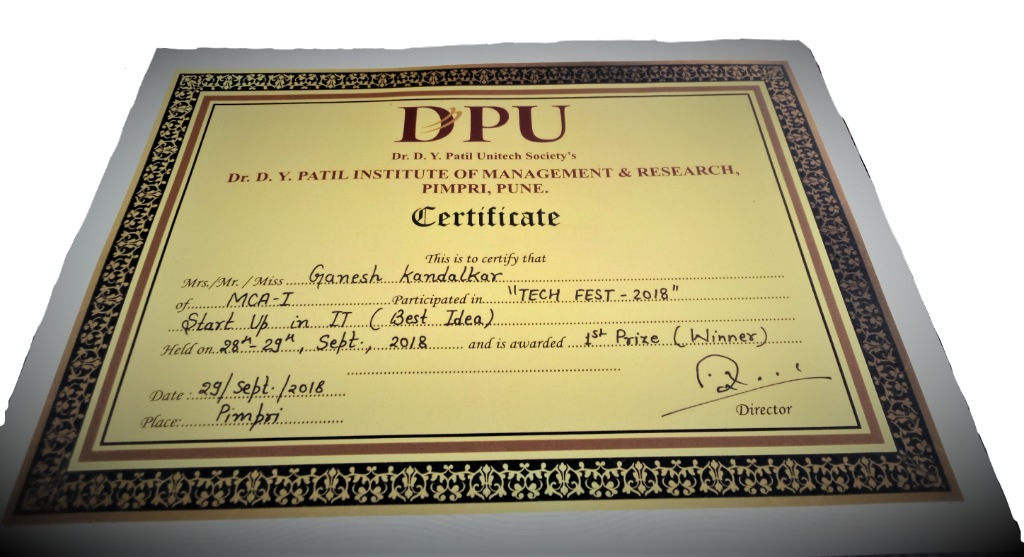 DPU
Dr. D. Y. Patil Unitech Society's
Dr. D. Y. PATIL INSTITUTE OF MANAGEMENT & RESEARCH,
PIMPRI, PUNE.
Certificate
This is to certify that
Mrs./Mr. / Miss Ganesh Kandalkar
of MCA-I Participated in "TECH FEST - 2018"
Start Up in IT ( Best Idea)
Held on 28th - 29th, Sept., 2018 and is awarded 1st Prize ( Winner)
Date : 29/Sept./2018
Place: Pimpri
Director